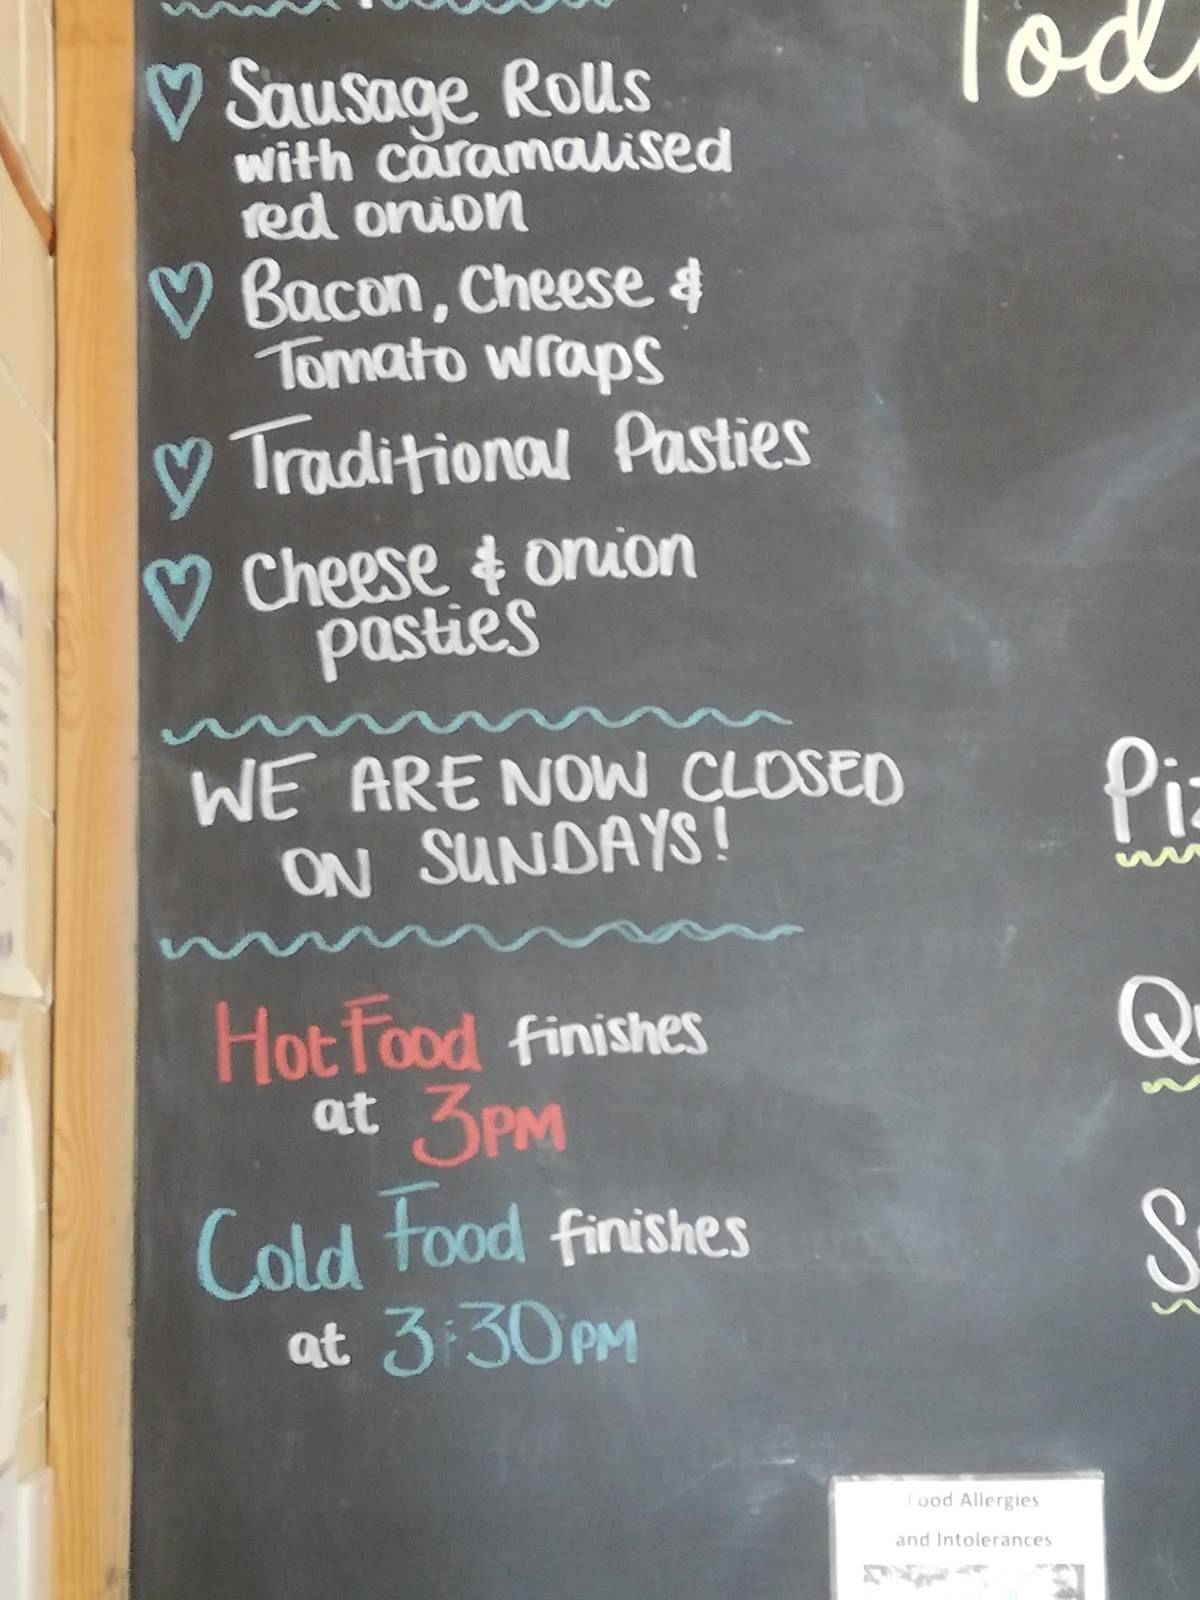 Sausage Rolls
with caramalised
red onion
Bacon, Cheese &
Tomato wraps
Traditional Pasties
Cheese & onion
pasties
WE ARE NOW CLOSED
ON SUNDAYS!
Hot Food finishes
at 3PM
Cold Food finishes
at 3:30PM
Food Allergies
and Intolerances